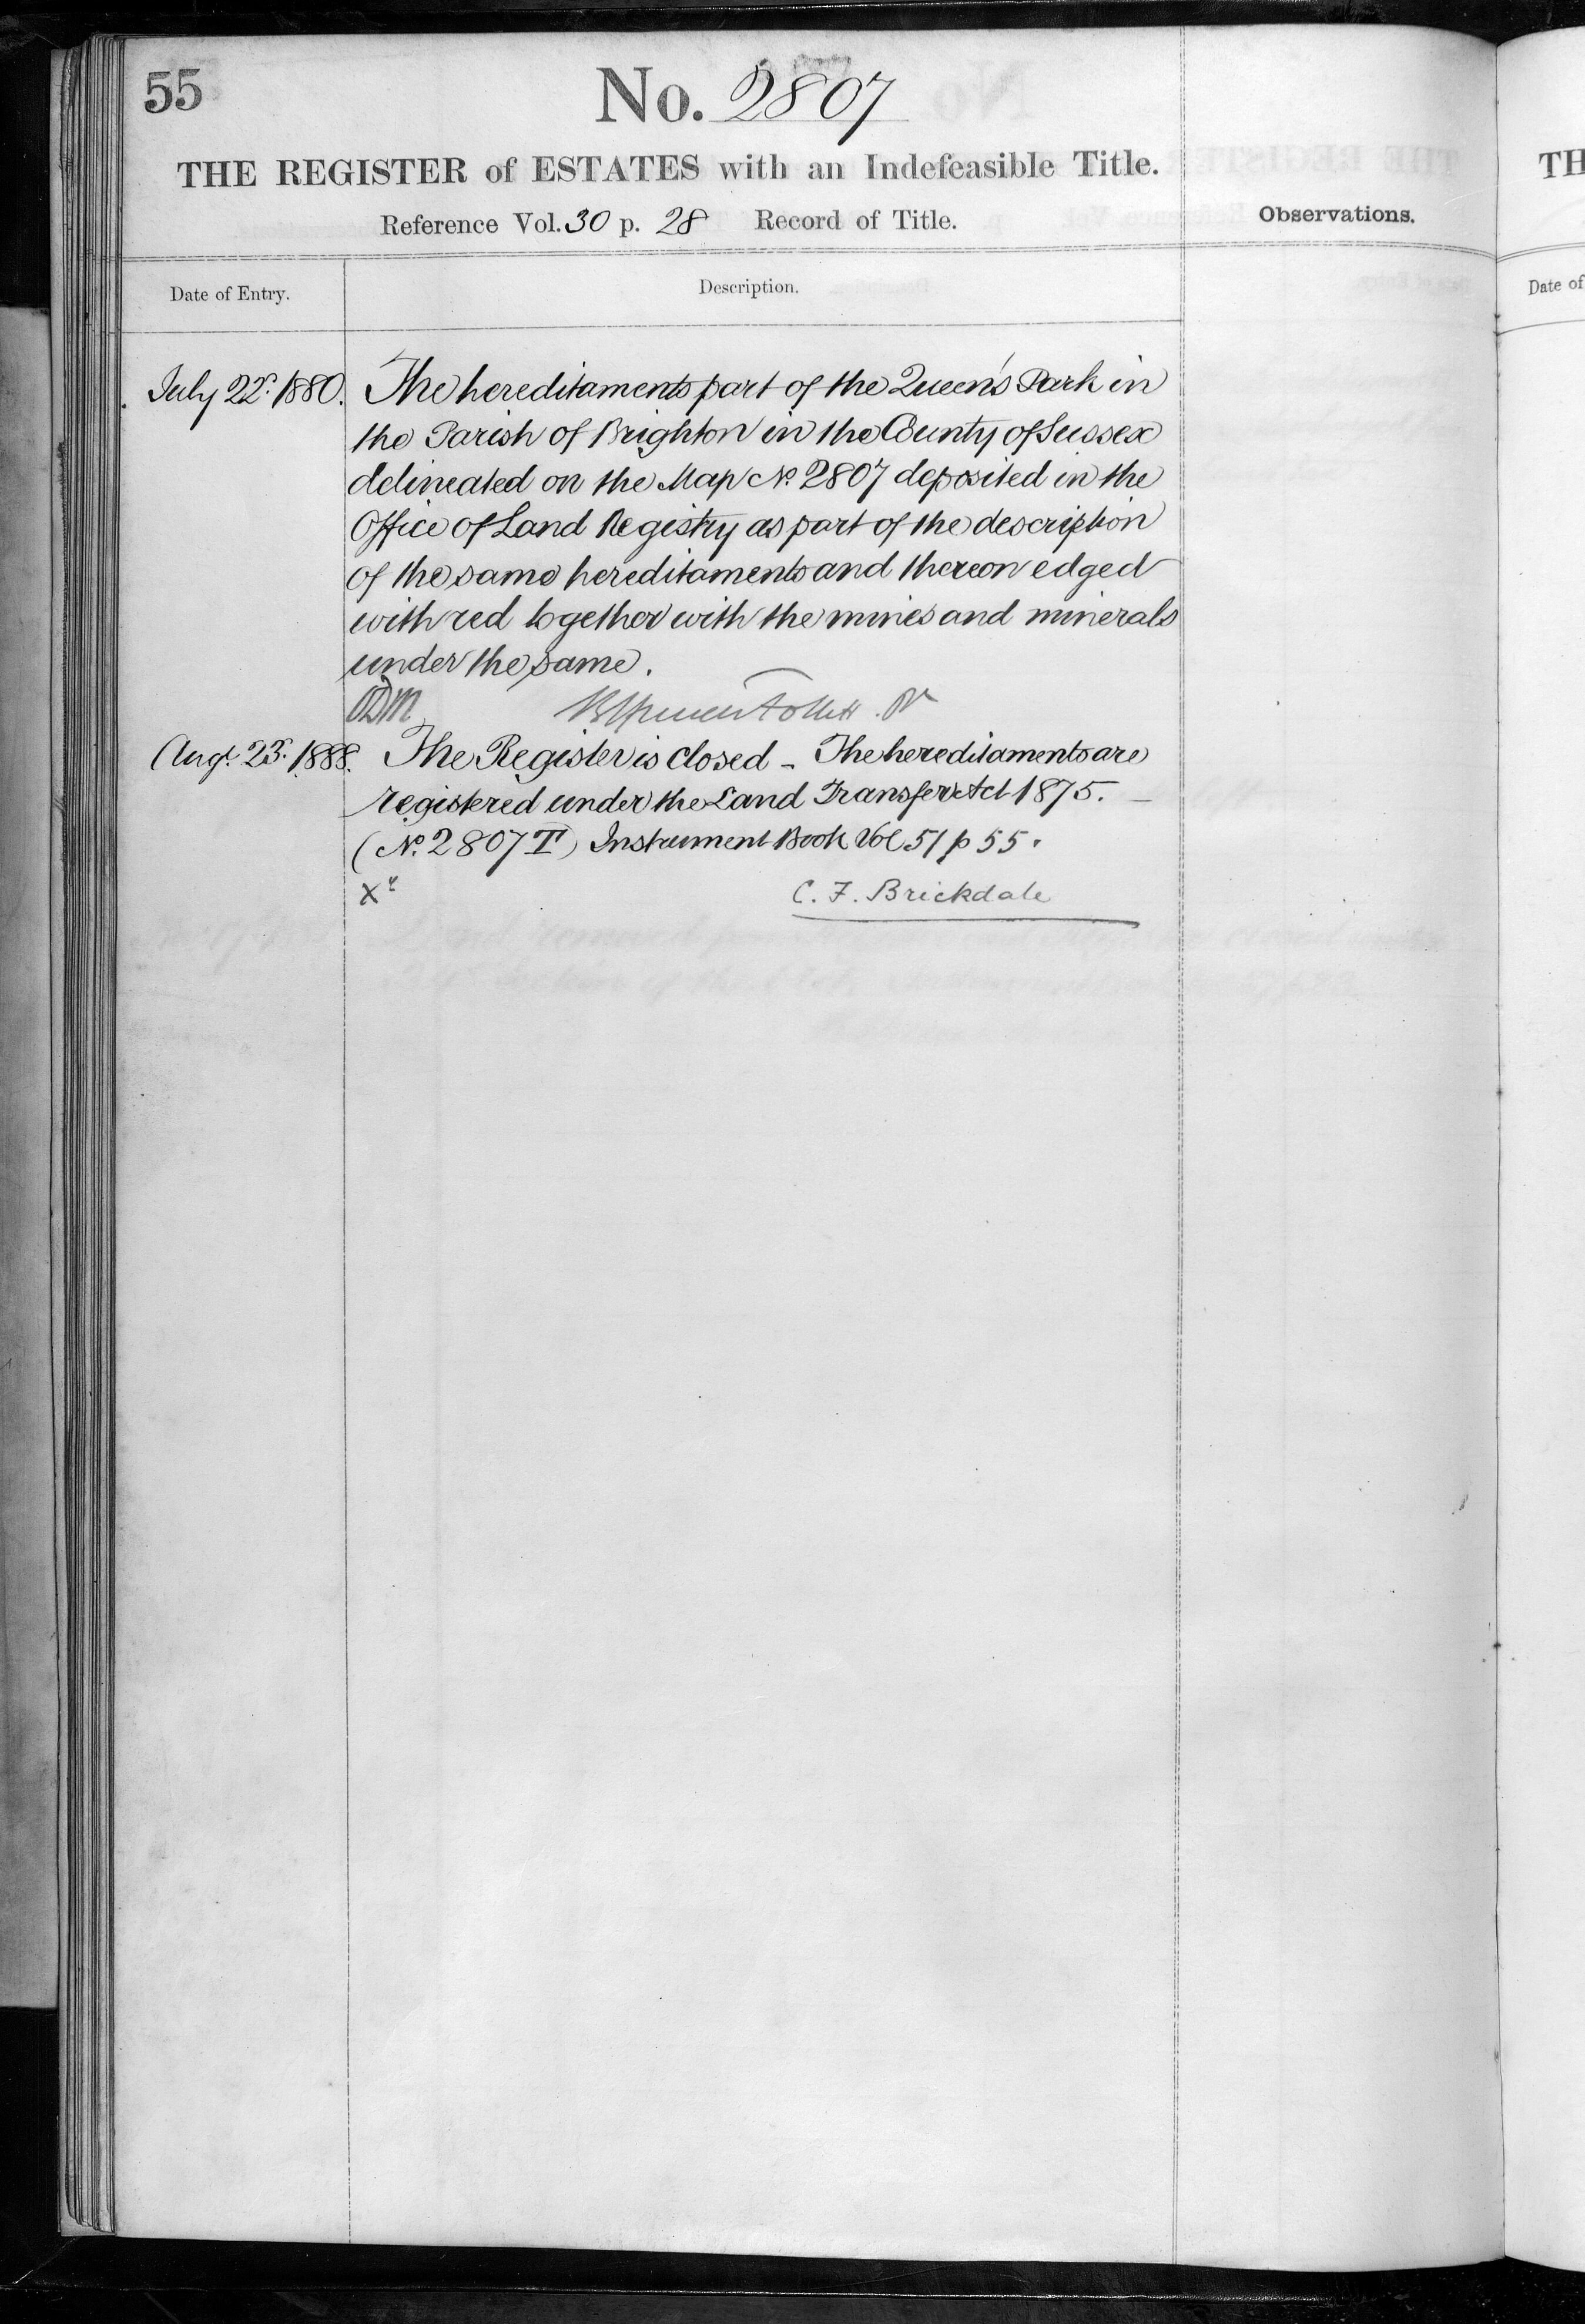 55
No. 2807
THE REGISTER of ESTATES with an Indefeasible Title.
Reference Vol. 30 p. 28 Record of Title.
Observations.
Date of Entry.
Description.
July 22. 1880. The hereditaments part of the Queen's Park in
the Parish of Brighton in the County of Sussex
delineated on the Map No. 2807 deposited in the
Office of Land Registry as part of the description
of the same hereditaments and thereon edged
with red together with the mines and minerals
under the same.
Augt. 23. 1888. The Register is closed - The hereditaments are
registered under the Land Transfer Act 1875. —
(No. 2807 T) Instrument Book Vol 51 p 55.
C. F. Brickdale
TH
Date of